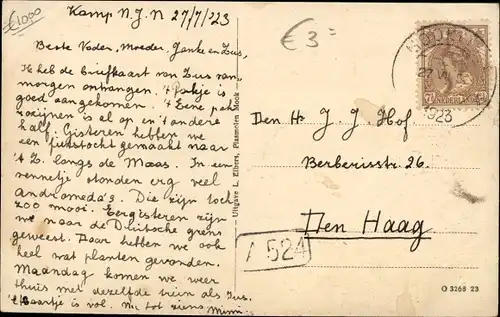 €1000
Kamp N.J.N 27/7/'23
Beste Vader, Moeder, Janke en Zus,
Ik heb de briefkaart van Zus van-
morgen ontvangen. 't Pakje is
goed aangekomen. 't Eene pak
rozijnen is al op en 't andere
half. Gisteren hebben we
een puitstocht gemaakt naar
't Z. langs de Maas. In een
vennetje stonden erg veel
Andromeda's. Die zijn toch
zoo mooi. Eergisteren zijn
we naar de Duitsche grens
geweest. Daar hebben we ook
heel wat planten gevonden.
Maandag komen we weer
thuis met dezelfde trein als Zus.
't Kaartje is vol. Nu tot ziens Mimi.
Uitgave L. Elbers, Plasmolen Mook
€3=
Den Hr J. J. Hof
Berberisstr. 26.
Den Haag
A 524
O 3268 23
1923
7½
NEDERLAND